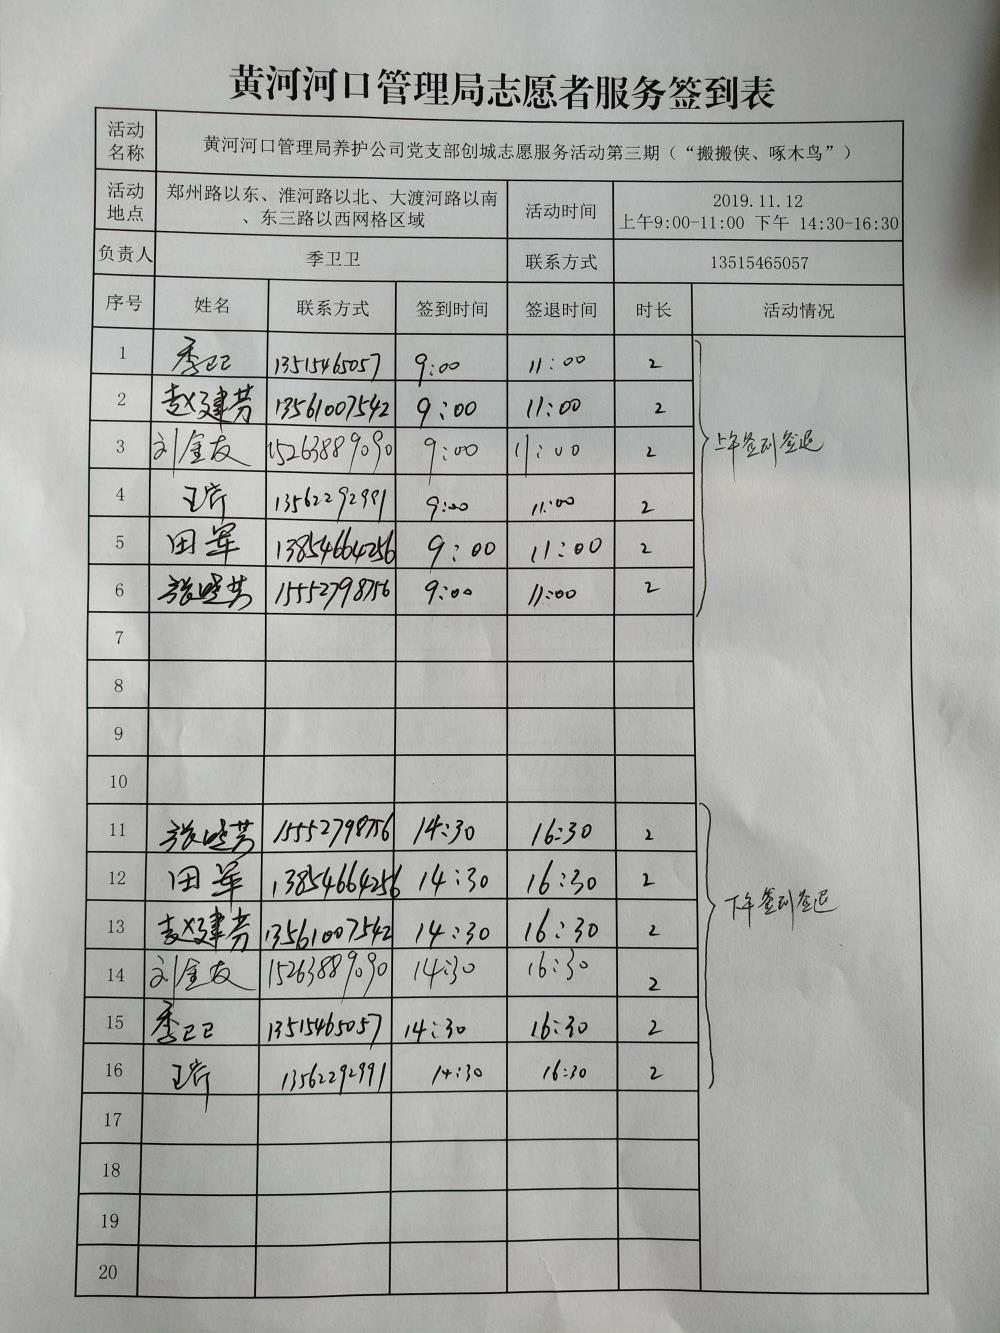 黄河河口管理局志愿者服务签到表
活动名称 黄河河口管理局养护公司党支部创城志愿服务活动第三期（“搬搬侠、啄木鸟”）
活动地点 郑州路以东、淮河路以北、大渡河路以南、东三路以西网格区域 活动时间 2019.11.12
上午9:00-11:00 下午 14:30-16:30
负责人 季卫卫 联系方式 13515465057
序号 姓名 联系方式 签到时间 签退时间 时长 活动情况
1 季卫卫 13515465057 9:00 11:00 2
2 赵建芳 13561007542 9:00 11:00 2
3 刘金友 15263889090 9:00 11:00 2
上午签到签退
4 13562292991 9:00 11:00 2
5 田军 13854664256 9:00 11:00 2
6 张晓芳 15552798756 9:00 11:00 2
7
8
9
10
11 张晓芳 15552798756 14:30 16:30 2
12 田军 13854664256 14:30 16:30 2
下午签到签退
13 赵建芳 13561007542 14:30 16:30 2
14 刘金友 15263889090 14:30 16:30 2
15 季卫卫 13515465057 14:30 16:30 2
16 13562292991 14:30 16:30 2
17
18
19
20